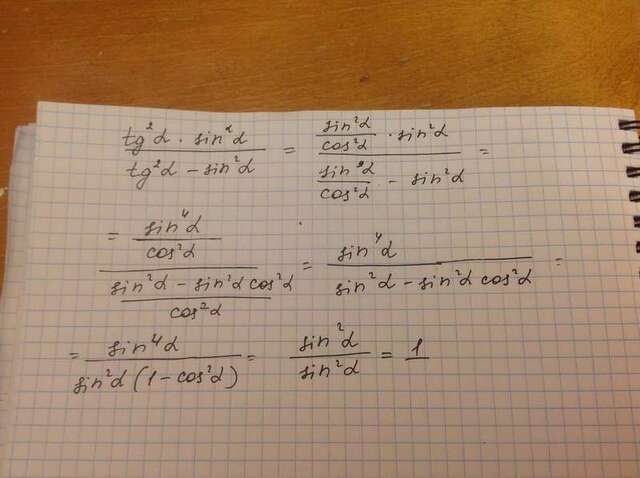 (tg²α · sin²α)/(tg²α − sin²α) = (sin²α/cos²α · sin²α)/(sin²α/cos²α − sin²α) =
= (sin⁴α/cos²α)/((sin²α − sin²α cos²α)/cos²α) = sin⁴α/(sin²α − sin²α cos²α) =
= sin⁴α/(sin²α (1 − cos²α)) = sin²α/sin²α = 1